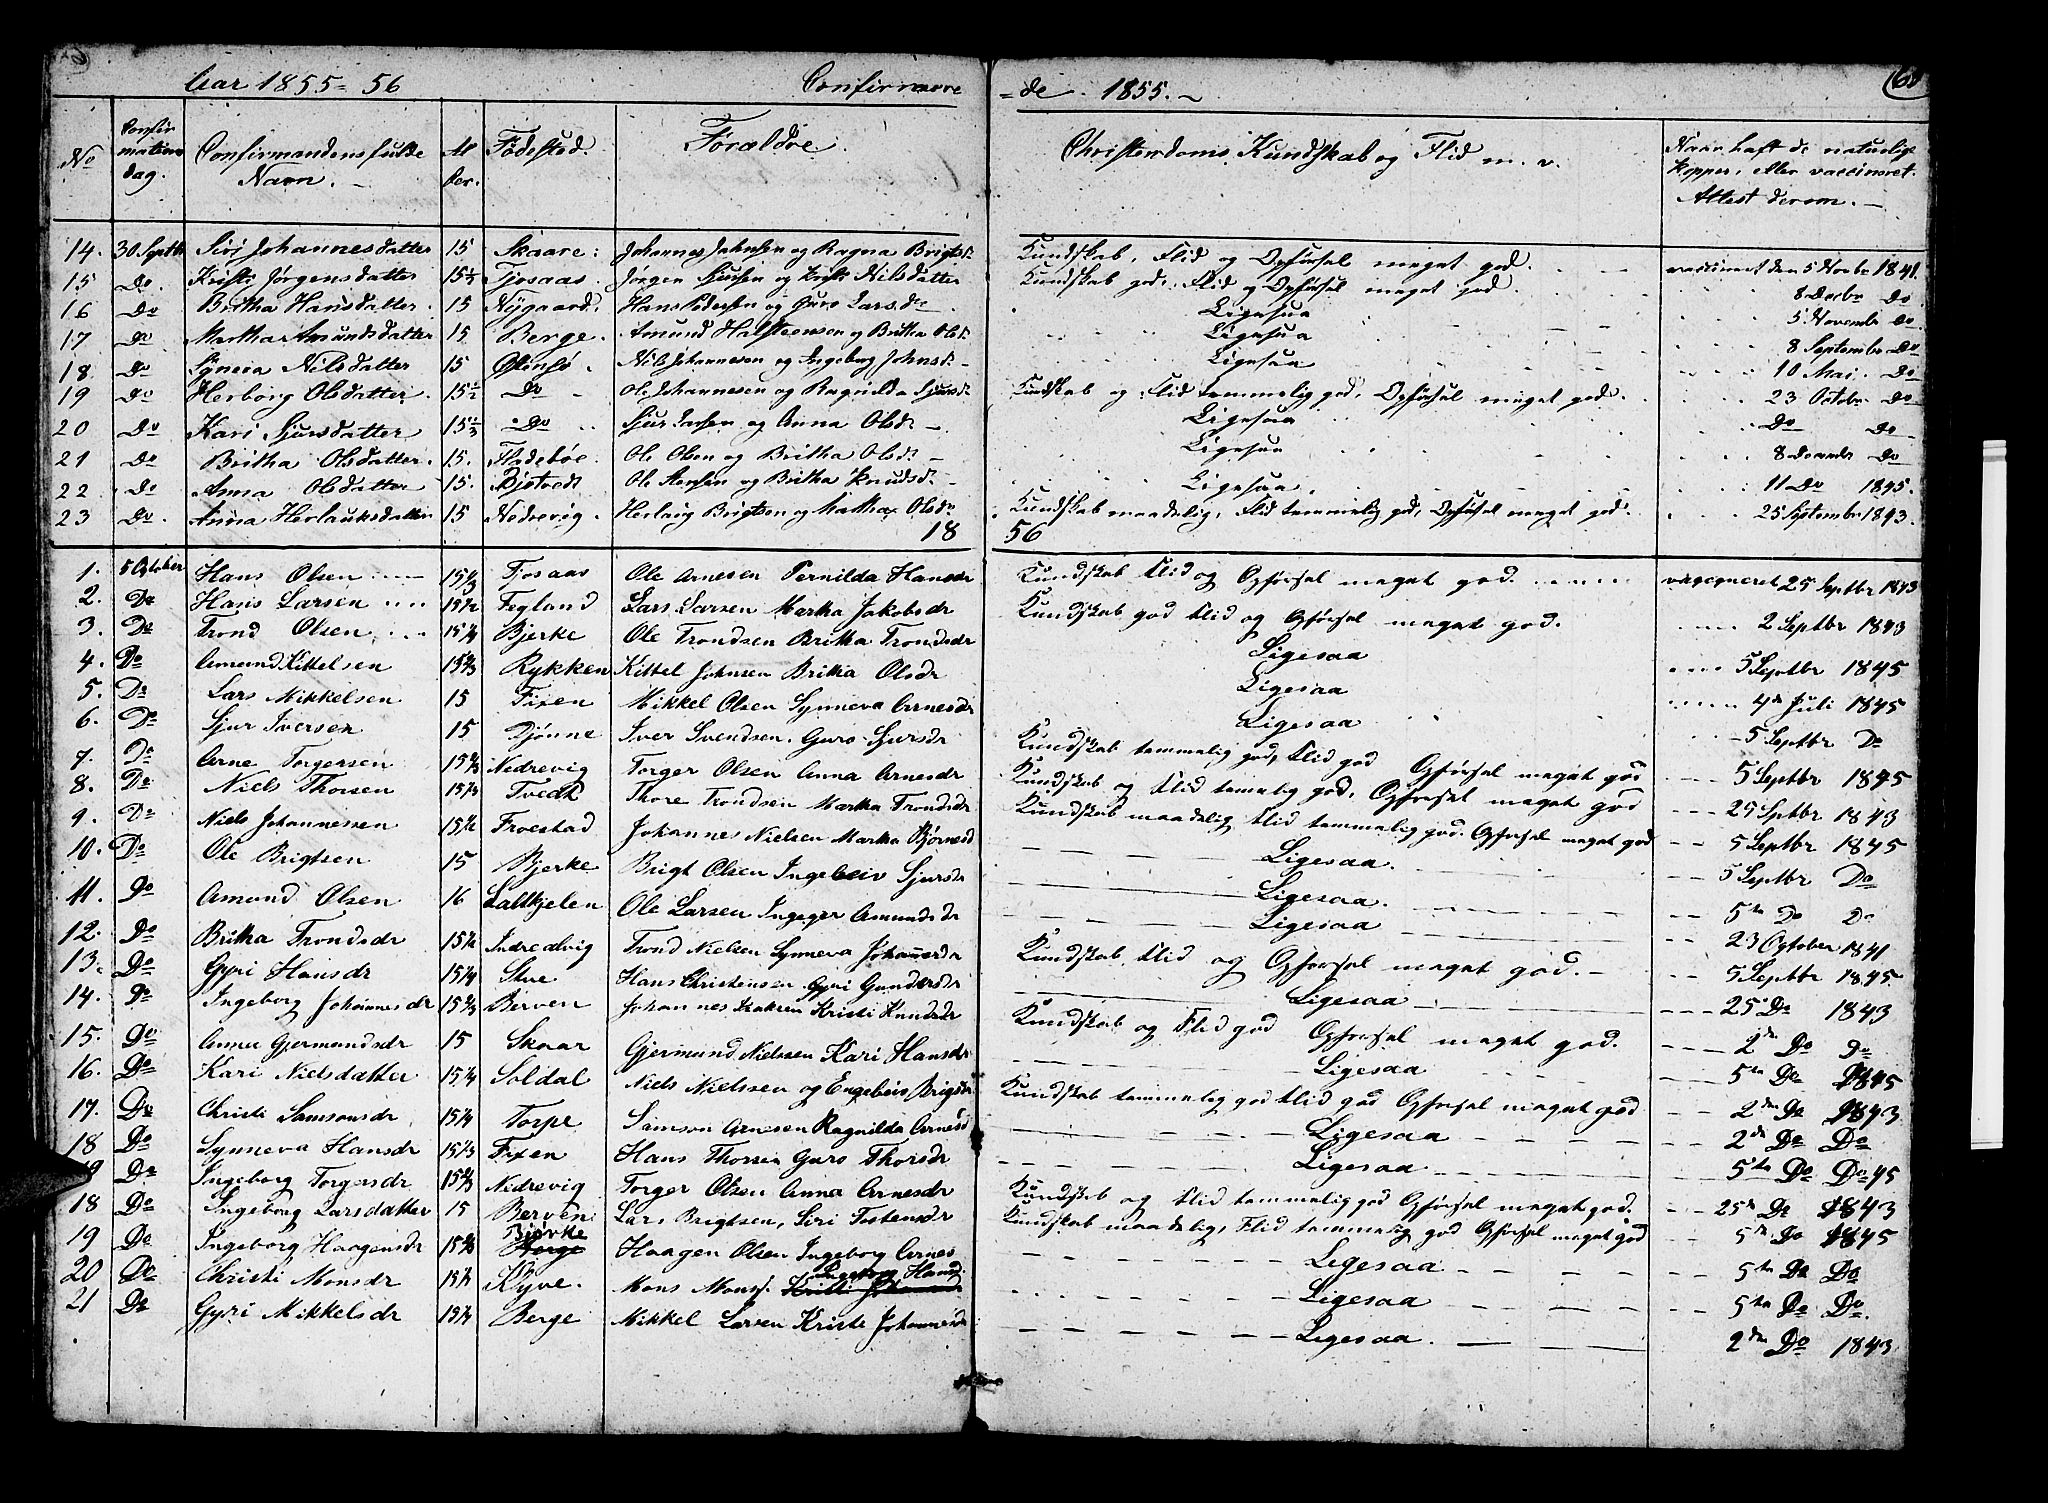 Aar 1855=56 Confirmere
=de 1855.
60
No Confirmations dag. Confirmandens fulde Navn. Alder. Födested. Forældre. Christendoms Kundskab og Flid m. v. Naar haft de naturlige Kopper, eller vaccineret. Attest derom.
14. 30 Septbr Siri Johannesdatter 15 Skaare: Johannes Johnsen og Ragna Brigtsd: Kundskab, Flid og Opførsel meget god. vaccineret den 5 Novbr 1841.
15 Do. Kristi Jørgensdatter 15½ Tjosaas. Jørgen Sjursen og Kristi Nilsdatter Kundskab god, Flid og Opførsel meget god. 8 Decbr Do.
16 Do Britha Hansdatter. 15 Nygaard. Hans Pedersen og Guro Larsdr Ligesaa 5 Novembr Do
17 Do Martha Amundsdatter 15 Berge. Amund Halsteensen og Britha Olsd: Ligesaa 8 Septembr Do
18 Do Syneva Nilsdatter 15 Nils Johannesen og Ingeborg Johnsd: Ligesaa 10 Mai. Do
19 Do Herborg Olsdatter. 15½ Do Ole Johannesen og Ragnilda Sjursd: Kundskab og Flid temmelig god, Opførsel meget god. 23 Octobr Do
20 Do Kari Sjursdatter Do Sjur Larsen og Anna Olsd: Ligesaa Do Do
21 Do Britha Olsdatter. 15. Fladebøe. Ole Olsen og Britha Olsd: Ligesaa 8 Decembr Do
22 Do Anna Olsdatter 15. Ole og Britha Knudsd: Ligesaa. 11 Do 1845.
23 Do. Anna Herlauksdatter 15 Nedrevig. Herlaug Brigtsen og Martha Olsdr Kundskab maadelig, Flid temmelig god, Opførsel meget god. 25 Septembr 1843.
18 56
1. 5 October Hans Olsen 15 Tjosaas Ole Arnesen Pernilda Hansdr Kundskab Flid og Opførsel meget god. vaccineret 25 Septbr 1843
2. Do Hans Larsen 15½ Fegland Lars Larsen Martha Jakobsdr Kundskab god Flid og Opførsel meget god. 2 Septbr 1843
3. Do Trond Olsen 15¼ Bjerke Ole Trondsen Britha Trondsdr Ligesaa 5 Septbr 1845
4. Do Amund Kittelsen 15⅔ Rykken Kittel Johnsen Britha Olsdr Ligesaa 4de Juli 1845
5. Do Lars Mikkelsen 15 Fixen Mikkel Olsen Synneva Arnesdr Ligesaa 5 Septbr Do
6. Do Sjur Iversen 15 Djønne Iver Svendsen. Guro Sjursdr Kundskab temmelig god, Flid god Opførsel meget god 5 Septbr 1845
7. Do Arne Torgersen 15⅔ Nedrevig Torger Olsen Anna Arnesdr Kundskab og Flid temmelig god, Opførsel meget god 25 Septbr 1843
8. Do. Niels Thorsen 15¼ Tvedt Thore Trondsen Martha Trondsdr Kundskab maadelig Flid temmelig god. Opførsel meget god 5 Septbr 1845
9. Do Niels Johannessen 15½ Froestad Johannes Nielsen Martha Bjørnesd Ligesaa. 5 Septbr Do
10. Do Ole Brigtsen 15 Bjerke Brigt Olsen Ingebeiv Sjursdr Ligesaa. 5te Do Do
11. Do Amund Olsen 16 Laltkjelen Ole Larsen Ingeger Amundsdr Ligesaa 23 October 1841
12. Do Britha Trondsdr 15½ Indrealvig Trond Nielsen Synneva Johannesdr Kundskab Flid og Opførsel meget god. 5 Septbr 1845.
13. Do Gyri Hansdr 15¼ Skre Hans Christensen Gyri Gundersdr Ligesaa 25 Do 1843
14. Do Ingeborg Johannesdr 15⅔ Berven Johannes Isaksen Kristi Knudsdr Kundskab og Flid god Opførsel meget god. 2de Do Do
15. Do Anna Gjermundsdr 15 Skaar Gjermund Nielssen Kari Hansdr Ligesaa 5te Do 1845
16. Do Kari Nielsdatter 15¼ Soldal Niels Nielssen og Engebeiv Brigtsdr Kundskab temmelig god Flid god Opførsel meget god 2den Do 1843
17. Do Christi Samsonsdr 15¼ Torpe Samson Arnesen Ragnilda Arnesd Ligesaa 2de Do Do
18 Do Synneva Hansdr 15⅓ Fixen Hans Thorsen Guro Thorsdr Ligesaa 5te Do Do 45
19 Do Ingeborg Torgersdr 15⅔ Nedrevig Torger Olsen Anna Arnesdr Kundskab og Flid temmelig god Opførsel meget god. 25de Do 1843
18 Do Ingeborg Larsdatter 15 Berven Lars Brigtsen, Siri Tostensdr Kundskab maadelig, Flid temmelig god Opførsel meget god 5te Do 1845
19 Do Ingeborg Haagensdr 15⅔ Bjørke Berge Haagen Olsen Ingeborg Arnes Ligesaa 5te Do Do
20 Do Christi Monsdr 15½ Kyve. Mons Monss. Ingeborg Hansd. Kristi Johannesd. Ligesaa 5te Do Do.
21 Do Gyri Mikkelsdr 15½ Berge Mikkel Larsen Kristi Johannesdr Ligesaa. 2den Do 1843